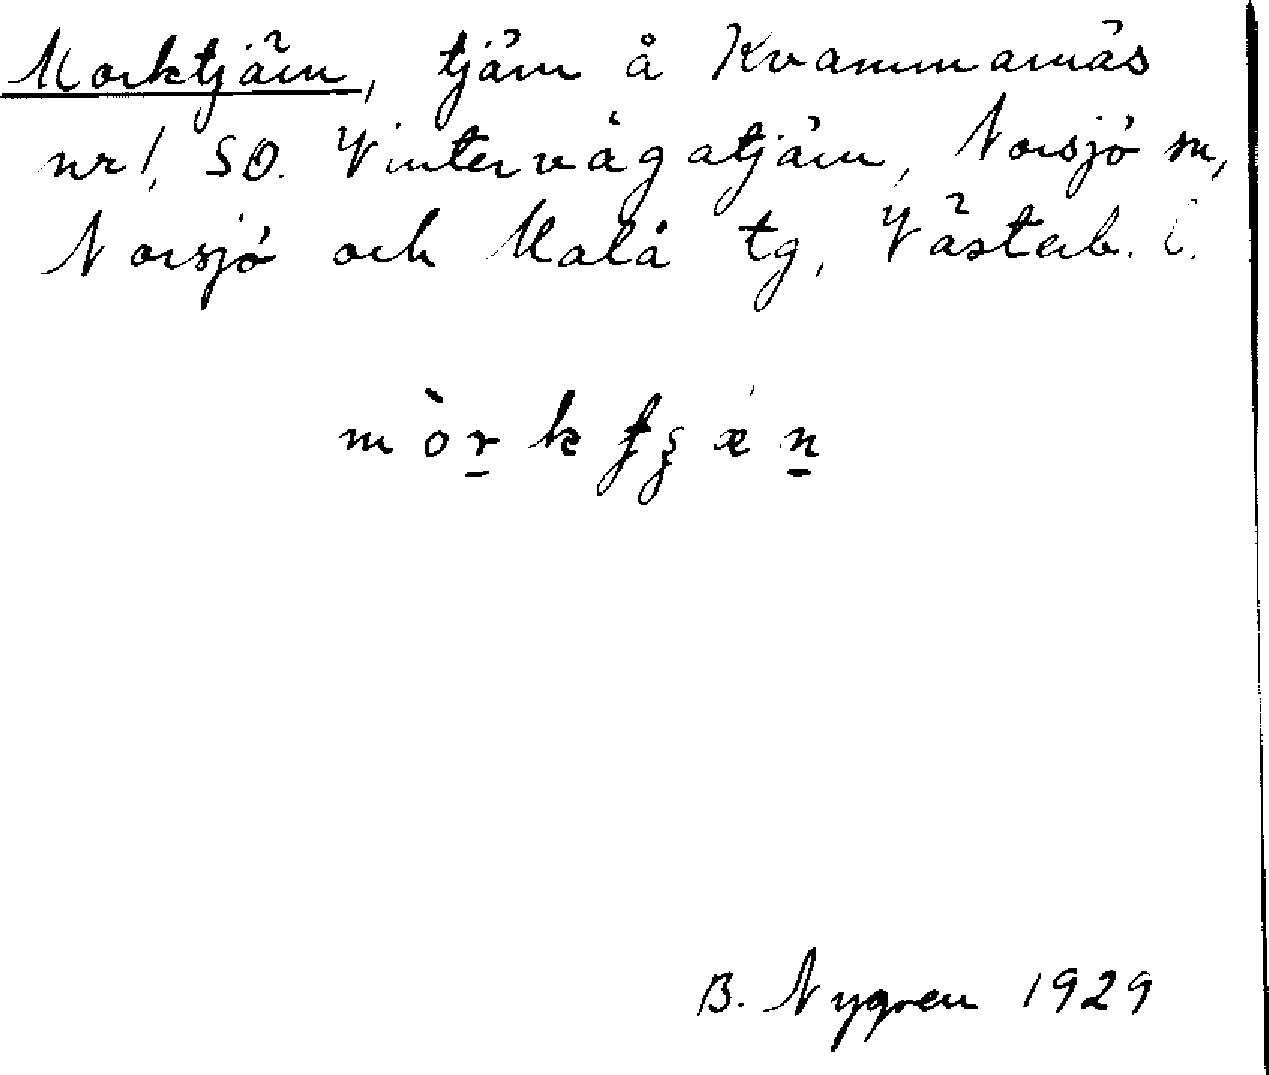 Morktjärn, tjärn å Kvammarnäs
nr 1, SO. Vintervägatjärn, Norsjö sn,
Norsjö och Malå tg, Västerb. l.
mòr̲k ʈʂæ̀n̲
B. Nygren 1929